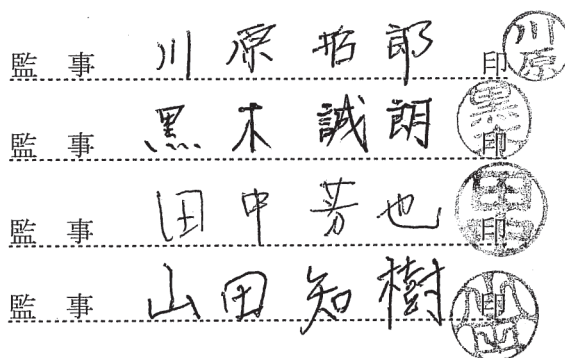 監事 川原哲郎 印 川原
監事 黒木誠朗 印 黒木
監事 田中芳也 印 田中
監事 山田知樹 印 山田